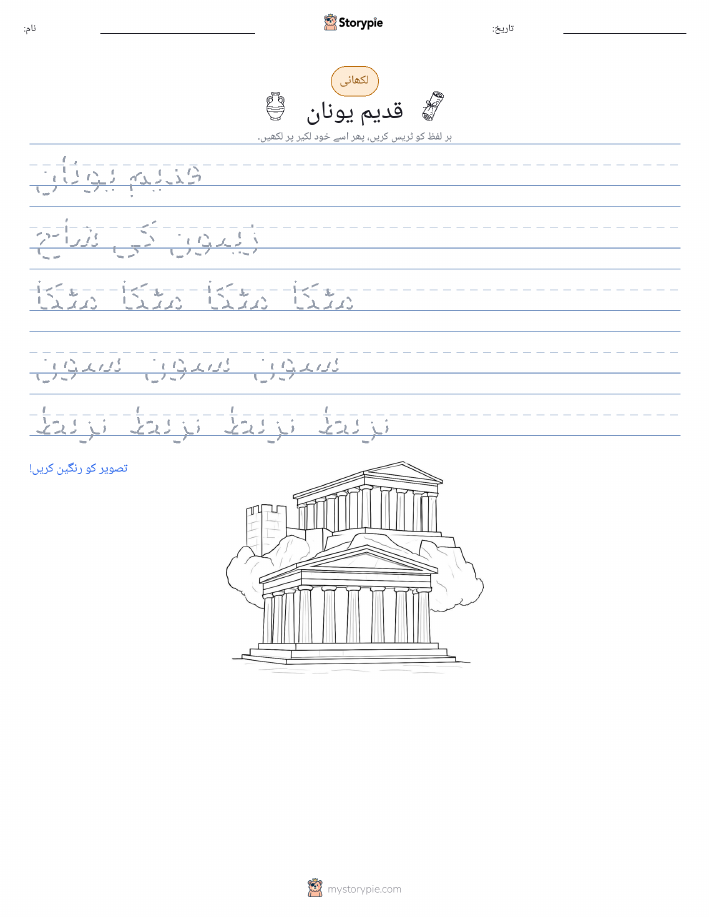 نام:
Storypie
تاریخ:
لکھائی
قدیم یونان
ہر لفظ کو ٹریس کریں، پھر اسے خود لکیر پر لکھیں۔
قدیم یونان
زیتون کی شاخ
مٹکا مٹکا مٹکا مٹکا
ستون ستون ستون
بربط بربط بربط بربط
تصویر کو رنگین کریں!
mystorypie.com